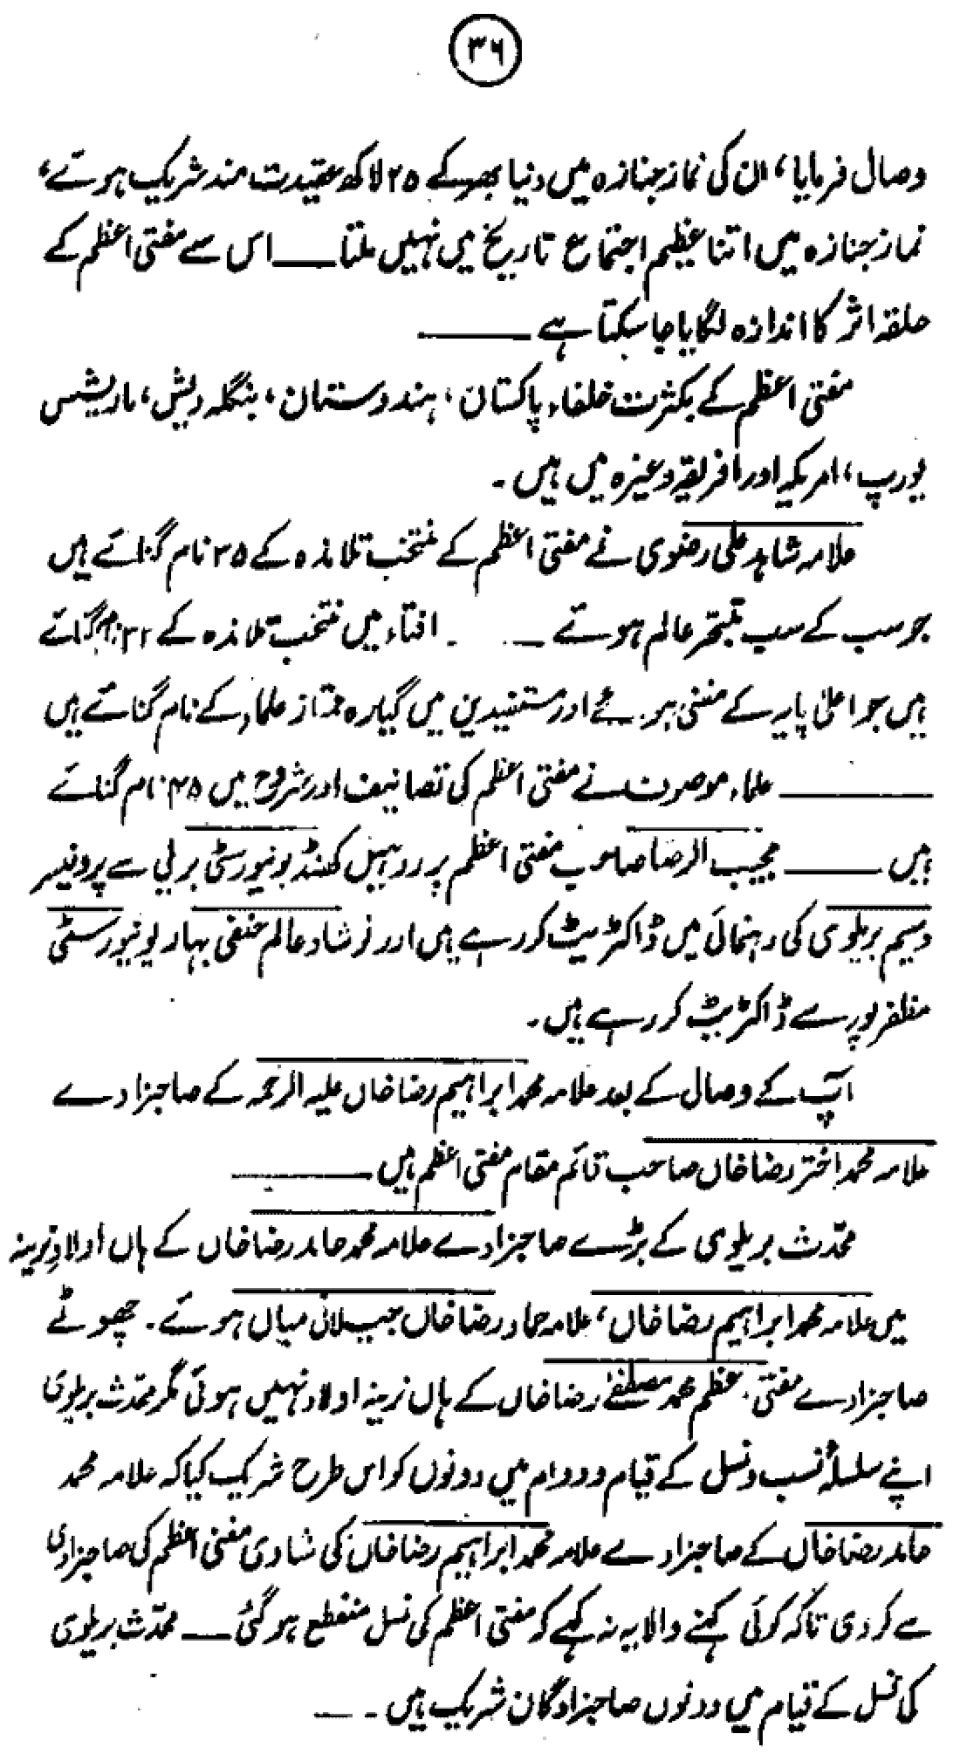 ۳۶
وصال فرمایا، ان کی نماز جنازہ میں دنیا بھر کے ۲۵ لاکھ عقیدت مند شریک ہوئے،
نماز جنازہ میں اتنا عظیم اجتماع تاریخ میں نہیں ملتا ــــ اس سے مفتی اعظم کے
حلقہ اثر کا اندازہ لگایا جا سکتا ہے ــــ
مفتی اعظم کے بکثرت خلفاء پاکستان، ہندوستان، بنگلہ دیش، ماریشس
یورپ، امریکہ اور افریقہ وغیرہ میں ہیں۔
علامہ شاہد علی رضوی نے مفتی اعظم کے منتخب تلامذہ کے ۳۵ نام گنائے ہیں
جو سب کے سب متبحر عالم ہوئے ــ ۔ افتاء میں منتخب تلامذہ کے ۳۲ نام گنائے
ہیں جو اعلیٰ پایہ کے مفتی ہوئے اور مستفیدین میں گیارہ ممتاز علماء کے نام گنائے ہیں
ــــ علماء موصوف نے مفتی اعظم کی تصانیف اور شروح میں ۴۵ نام گنائے
ہیں ــــ مجیب الرضا صاحب مفتی اعظم پر روہیل کھنڈ یونیورسٹی بریلی سے پروفیسر
وسیم بریلوی کی رہنمائی میں ڈاکٹریٹ کر رہے ہیں اور نوشاد عالم حنفی بہار یونیورسٹی
مظفر پور سے ڈاکٹریٹ کر رہے ہیں۔
آپ کے وصال کے بعد علامہ محمد ابراہیم رضا خاں علیہ الرحمہ کے صاحبزادے
علامہ محمد اختر رضا خاں صاحب قائم مقام مفتی اعظم ہیں ــــ
محدّث بریلوی کے بڑے صاحبزادے علامہ محمد حامد رضا خاں کے ہاں اولادِ نرینہ
میں علامہ محمد ابراہیم رضا خاں، علامہ حماد رضا خاں جیلانی میاں ہوئے۔ چھوٹے
صاحبزادے مفتی اعظم محمد مصطفےٰ رضا خاں کے ہاں نرینہ اولاد نہیں ہوئی مگر محدّث بریلوی
اپنے سلسلۂ نسب و نسل کے قیام و دوام میں دونوں کو اس طرح شریک کیا کہ علامہ محمد
حامد رضا خاں کے صاحبزادے علامہ محمد ابراہیم رضا خاں کی شادی مفتی اعظم کی صاحبزادی
سے کر دی تاکہ کوئی کہنے والا یہ نہ کہے کہ مفتی اعظم کی نسل منقطع ہو گئی ــــ محدّث بریلوی
کی نسل کے قیام میں دونوں صاحبزادگان شریک ہیں۔ ــ